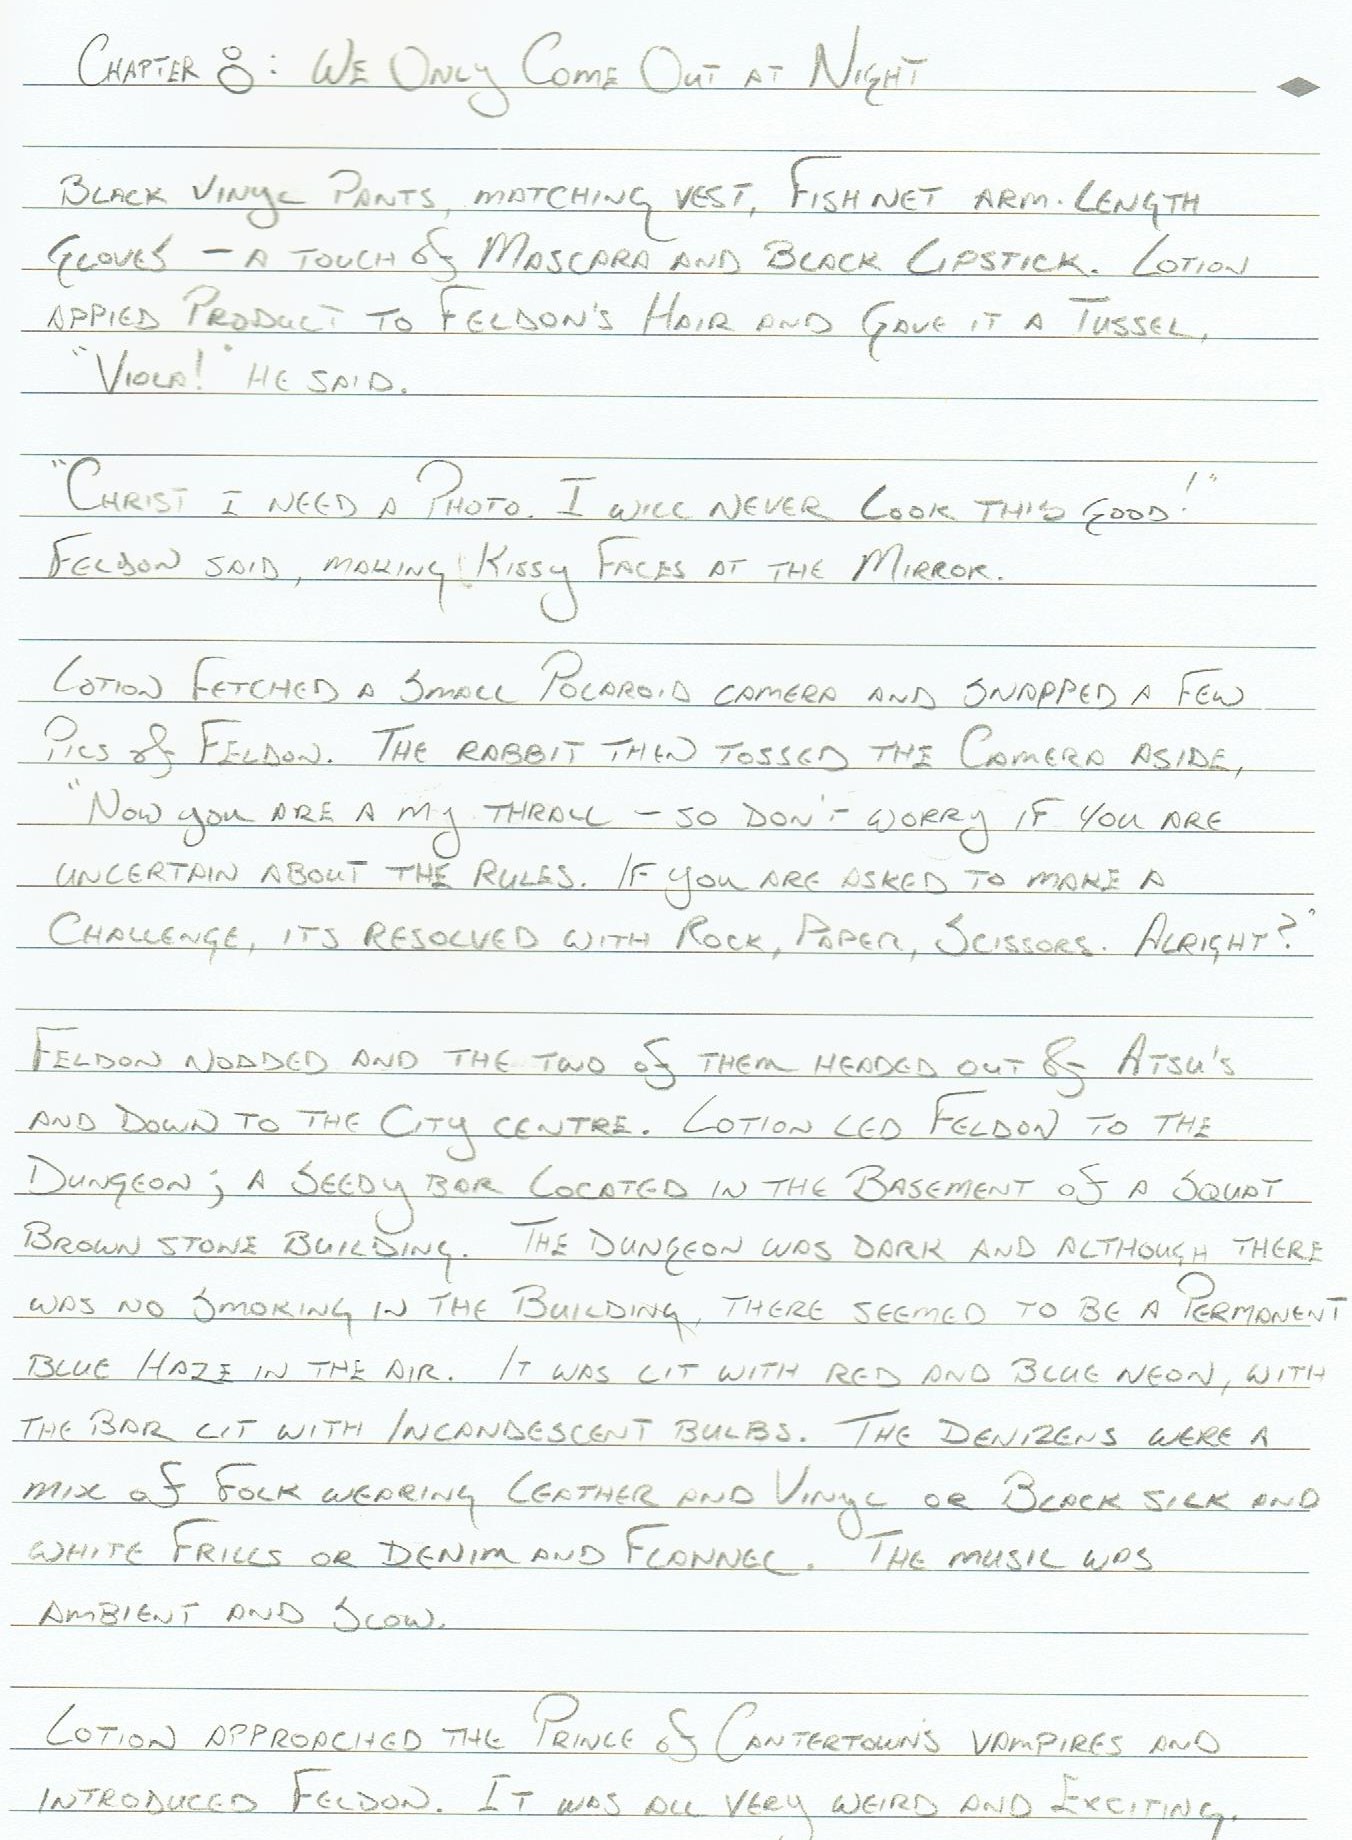 Chapter 8: We Only Come Out at Night
Black vinyl pants, matching vest, fishnet arm-length
gloves – a touch of mascara and black lipstick. Lotion
appied product to Feldon's hair and gave it a tussel,
"Viola!" he said.
"Christ I need a photo. I will never look this good!"
Feldon said, making kissy faces at the mirror.
Lotion fetched a small Polaroid camera and snapped a few
pics of Feldon. The rabbit then tossed the camera aside,
"Now you are a my thrall – so don't worry if you are
uncertain about the rules. If you are asked to make a
challenge, its resolved with rock, paper, scissors. Alright?"
Feldon nodded and the two of them headed out of Atsu's
and down to the city centre. Lotion led Feldon to the
Dungeon; a seedy bar located in the basement of a squat
brown stone building. The Dungeon was dark and although there
was no smoking in the building, there seemed to be a permanent
blue haze in the air. It was lit with red and blue neon, with
the bar lit with incandescent bulbs. The denizens were a
mix of folk wearing leather and vinyl or black silk and
white frills or denim and flannel. The music was
ambient and slow.
Lotion approached the Prince of Cantertown's vampires and
introduced Feldon. It was all very weird and exciting.